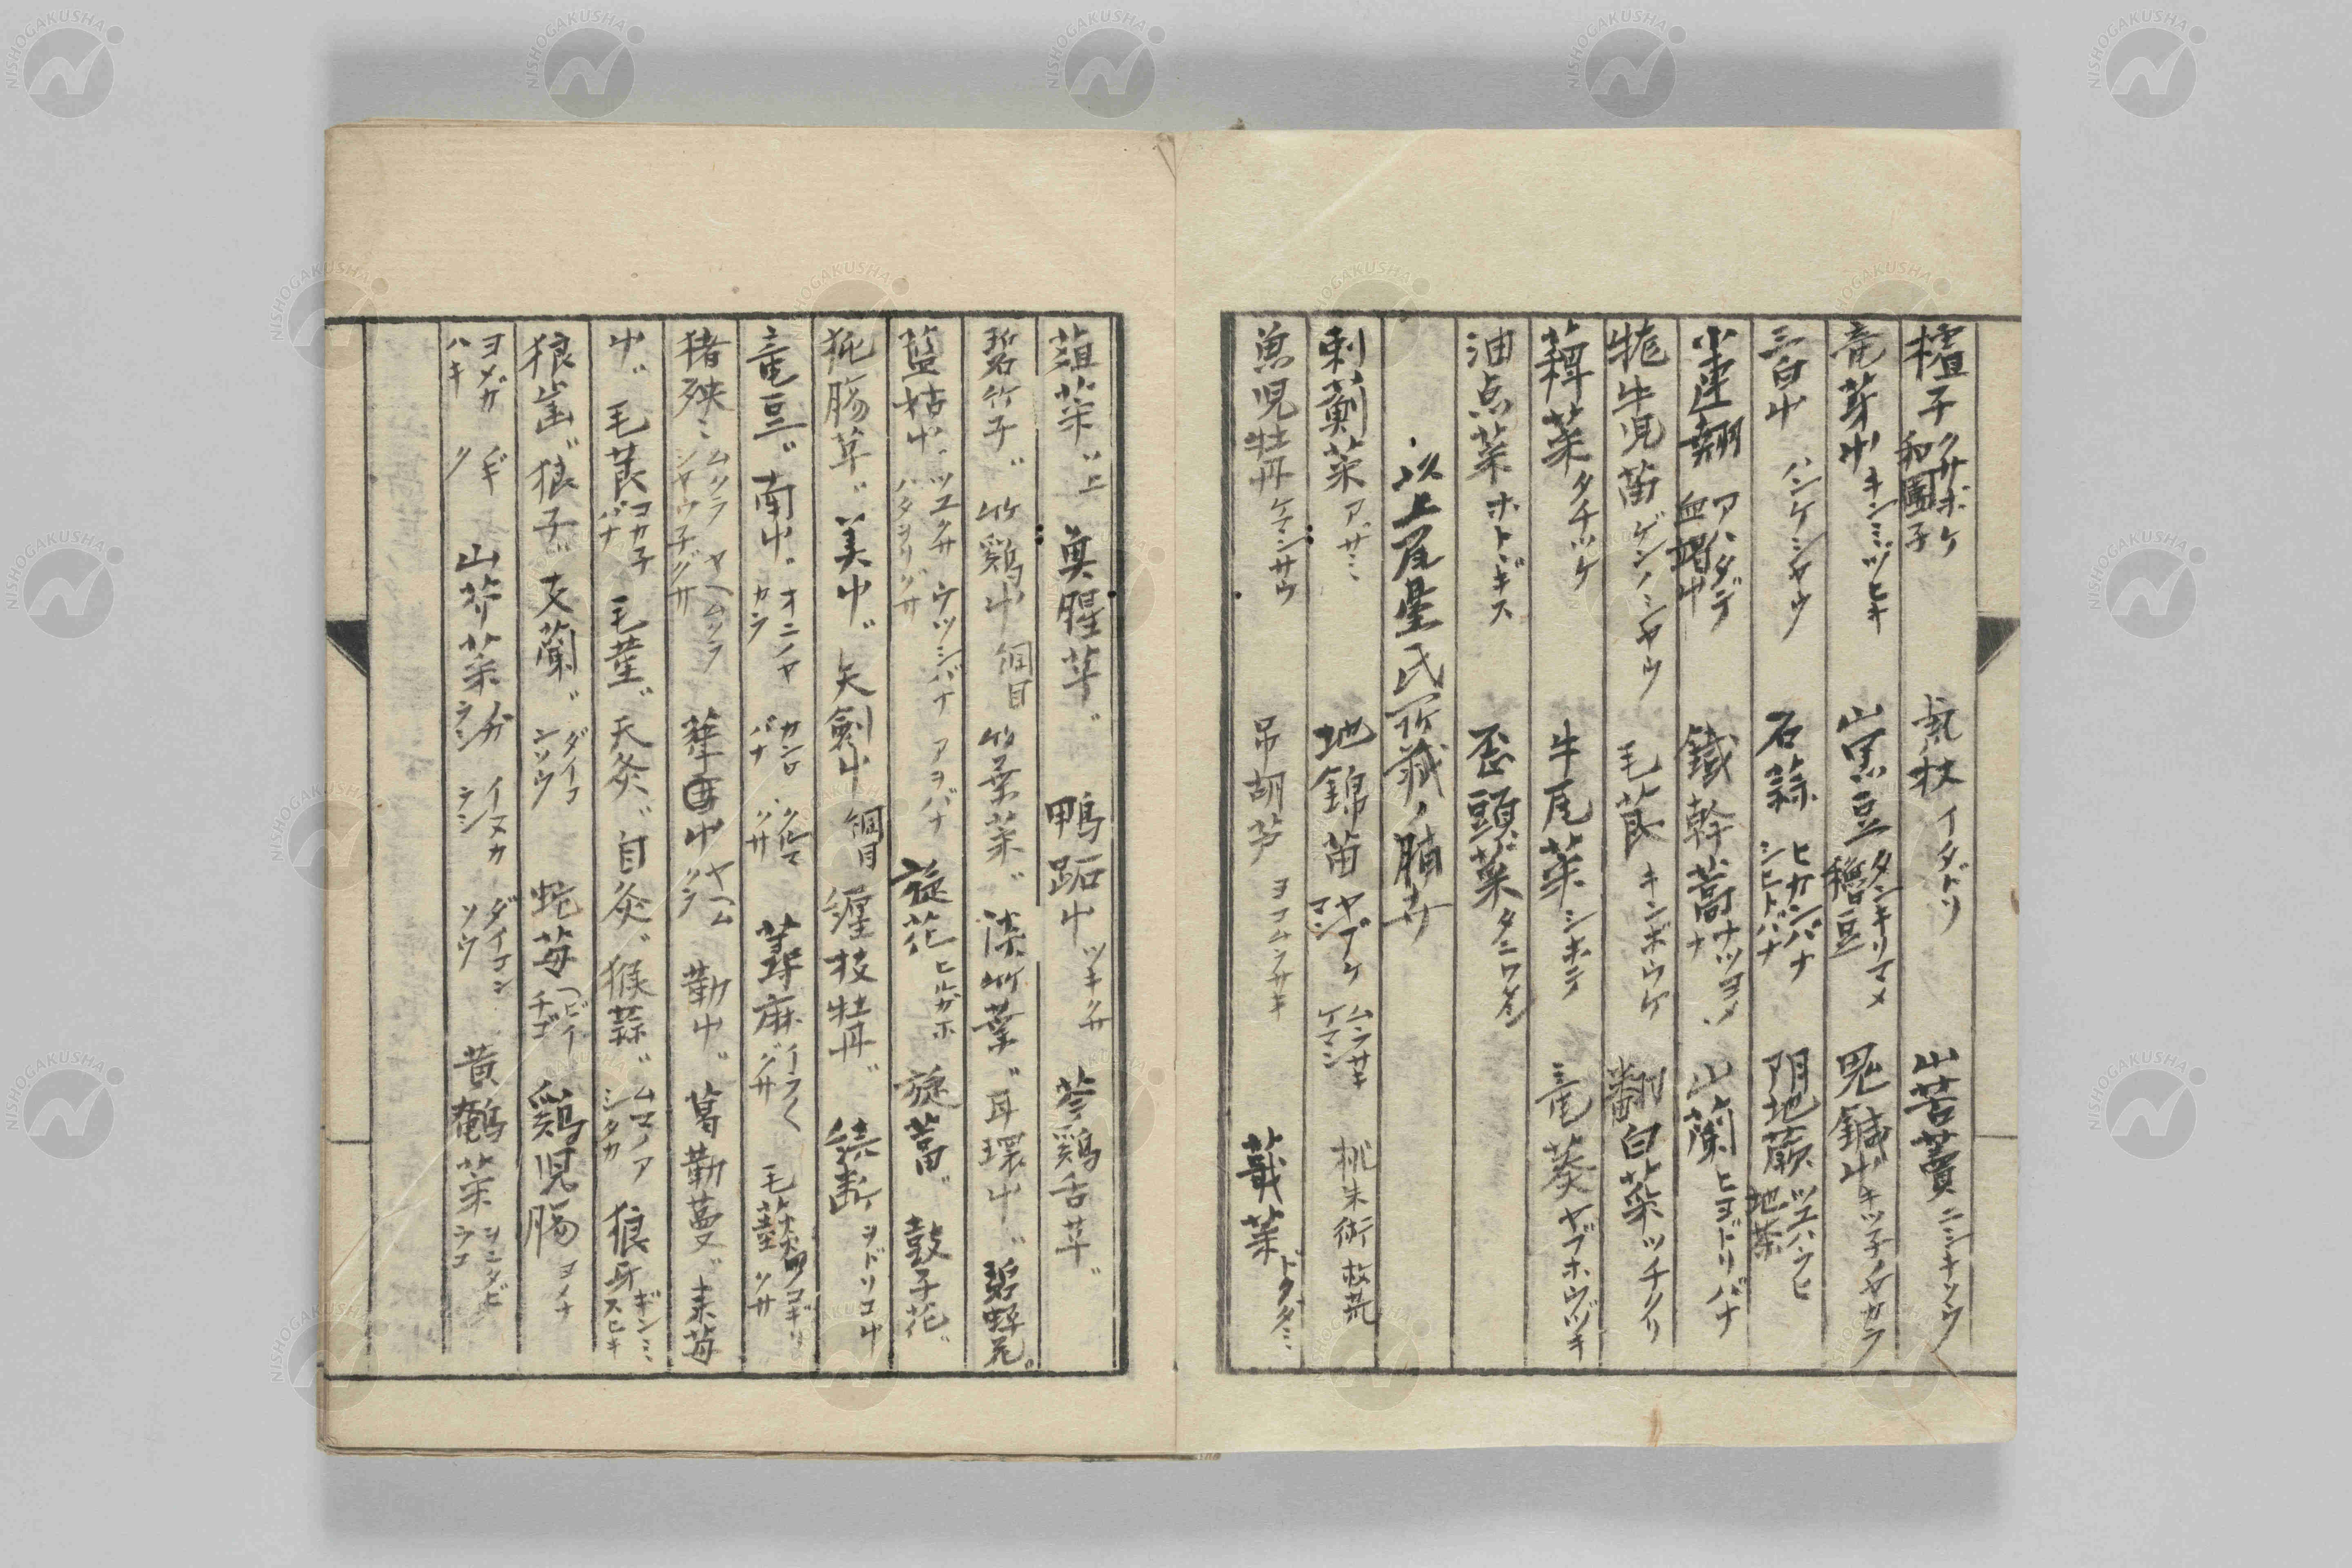 樝子 クサボケ 和圓子 虎杖 イタドリ 山苦蕒 ニシキソウ
竜芽屮 キンミツヒキ 山黒豆 タンキリマメ 穭豆 鬼鍼屮 キツ子ノヤガラ
三白屮 ハンゲシヤウ 石蒜 ヒガンバナ シヒトバナ 陰地蕨 ツユハラヒ 地茶
小連翹 アハダテ 血 屮 鐵幹蒿 ナツヨメナ 山蘭 ヒヨドリバナ
牻牛児苗 ゲンノシヤウ 毛茛 キンボウゲ 翻白菜 ツチクリ
菜 タチツケ 牛尾菜 シホデ 竜葵 ヤブホウヅキ
油点菜 ホトヽギス 歪頭菜 タニワタシ
以上尾臺氏所蔵ノ腊サ
刺薊菜 アザミ 地錦苗 ヤブケマン ムラサキケマン 桃朱術 救荒
魚児牡丹 ケマンサウ 吊胡芦 ヨコムラサキ 蕺菜 ドクダミ
葅菜〃上 魚腥草〃 鴨跖屮 ツキクサ 苓鶏舌草〃
碧竹子〃 竹鶏屮 綱目 竹葉菜〃 淡竹葉〃 耳環屮〃 碧蝉花〃
藍姑屮〃 ツユクサ ウツシバナ ハタヲリグサ アヲバナ 旋花 ヒルガホ 旋葍〃 鼓子花〃
㹠腸草〃 美屮〃 天剣屮 綱目 纏枝牡丹〃 続断 ヲドリコサ
竜豆〃 南屮〃 オニノヤガラ カンロバナ クルマクサ 蕁麻 イラクグサ 毛蕻 ノコギリソサ
猪殃ミ ムグラ ヤヘムグラ シヤウ子グサ 葎屮 ヤヘムグラ 勒屮〃 葛勒蔓〃 来莓
屮〃 毛茛 コカ子バナ 毛菫〃 天灸〃 自灸〃 猴蒜〃 ムマノアシガタ 狼牙 ギンミスヒキ
狼 〃 狼子〃 支蘭〃 ダイコンソウ 蛇苺 ヘビイチゴ 鶏児腸 ヨメナ
ヨメガハギ ノギク 山芥菜 カラシ イヌカラシ ダイコンソウ 黄鵪菜